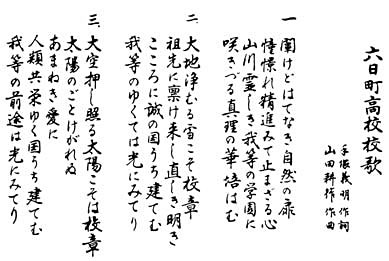 六日町高校校歌
手塚義明 作詞
山田耕作 作曲
一 闢けどはてなき自然の扉
憧憬れ精進みて止まざる心
山川霊しき我等の学園に
咲きづる真理の華培はむ
二 大地浄むる雪こそ校章
祖先に禀け来し直しき明き
こころに誠の国うち建てむ
我等のゆくては光にみてり
三 大空押し照る太陽こそは校章
太陽のごとけがれぬ
あまねき愛に
人類共栄ゆく国うち建てむ
我等の前途は光にみてり